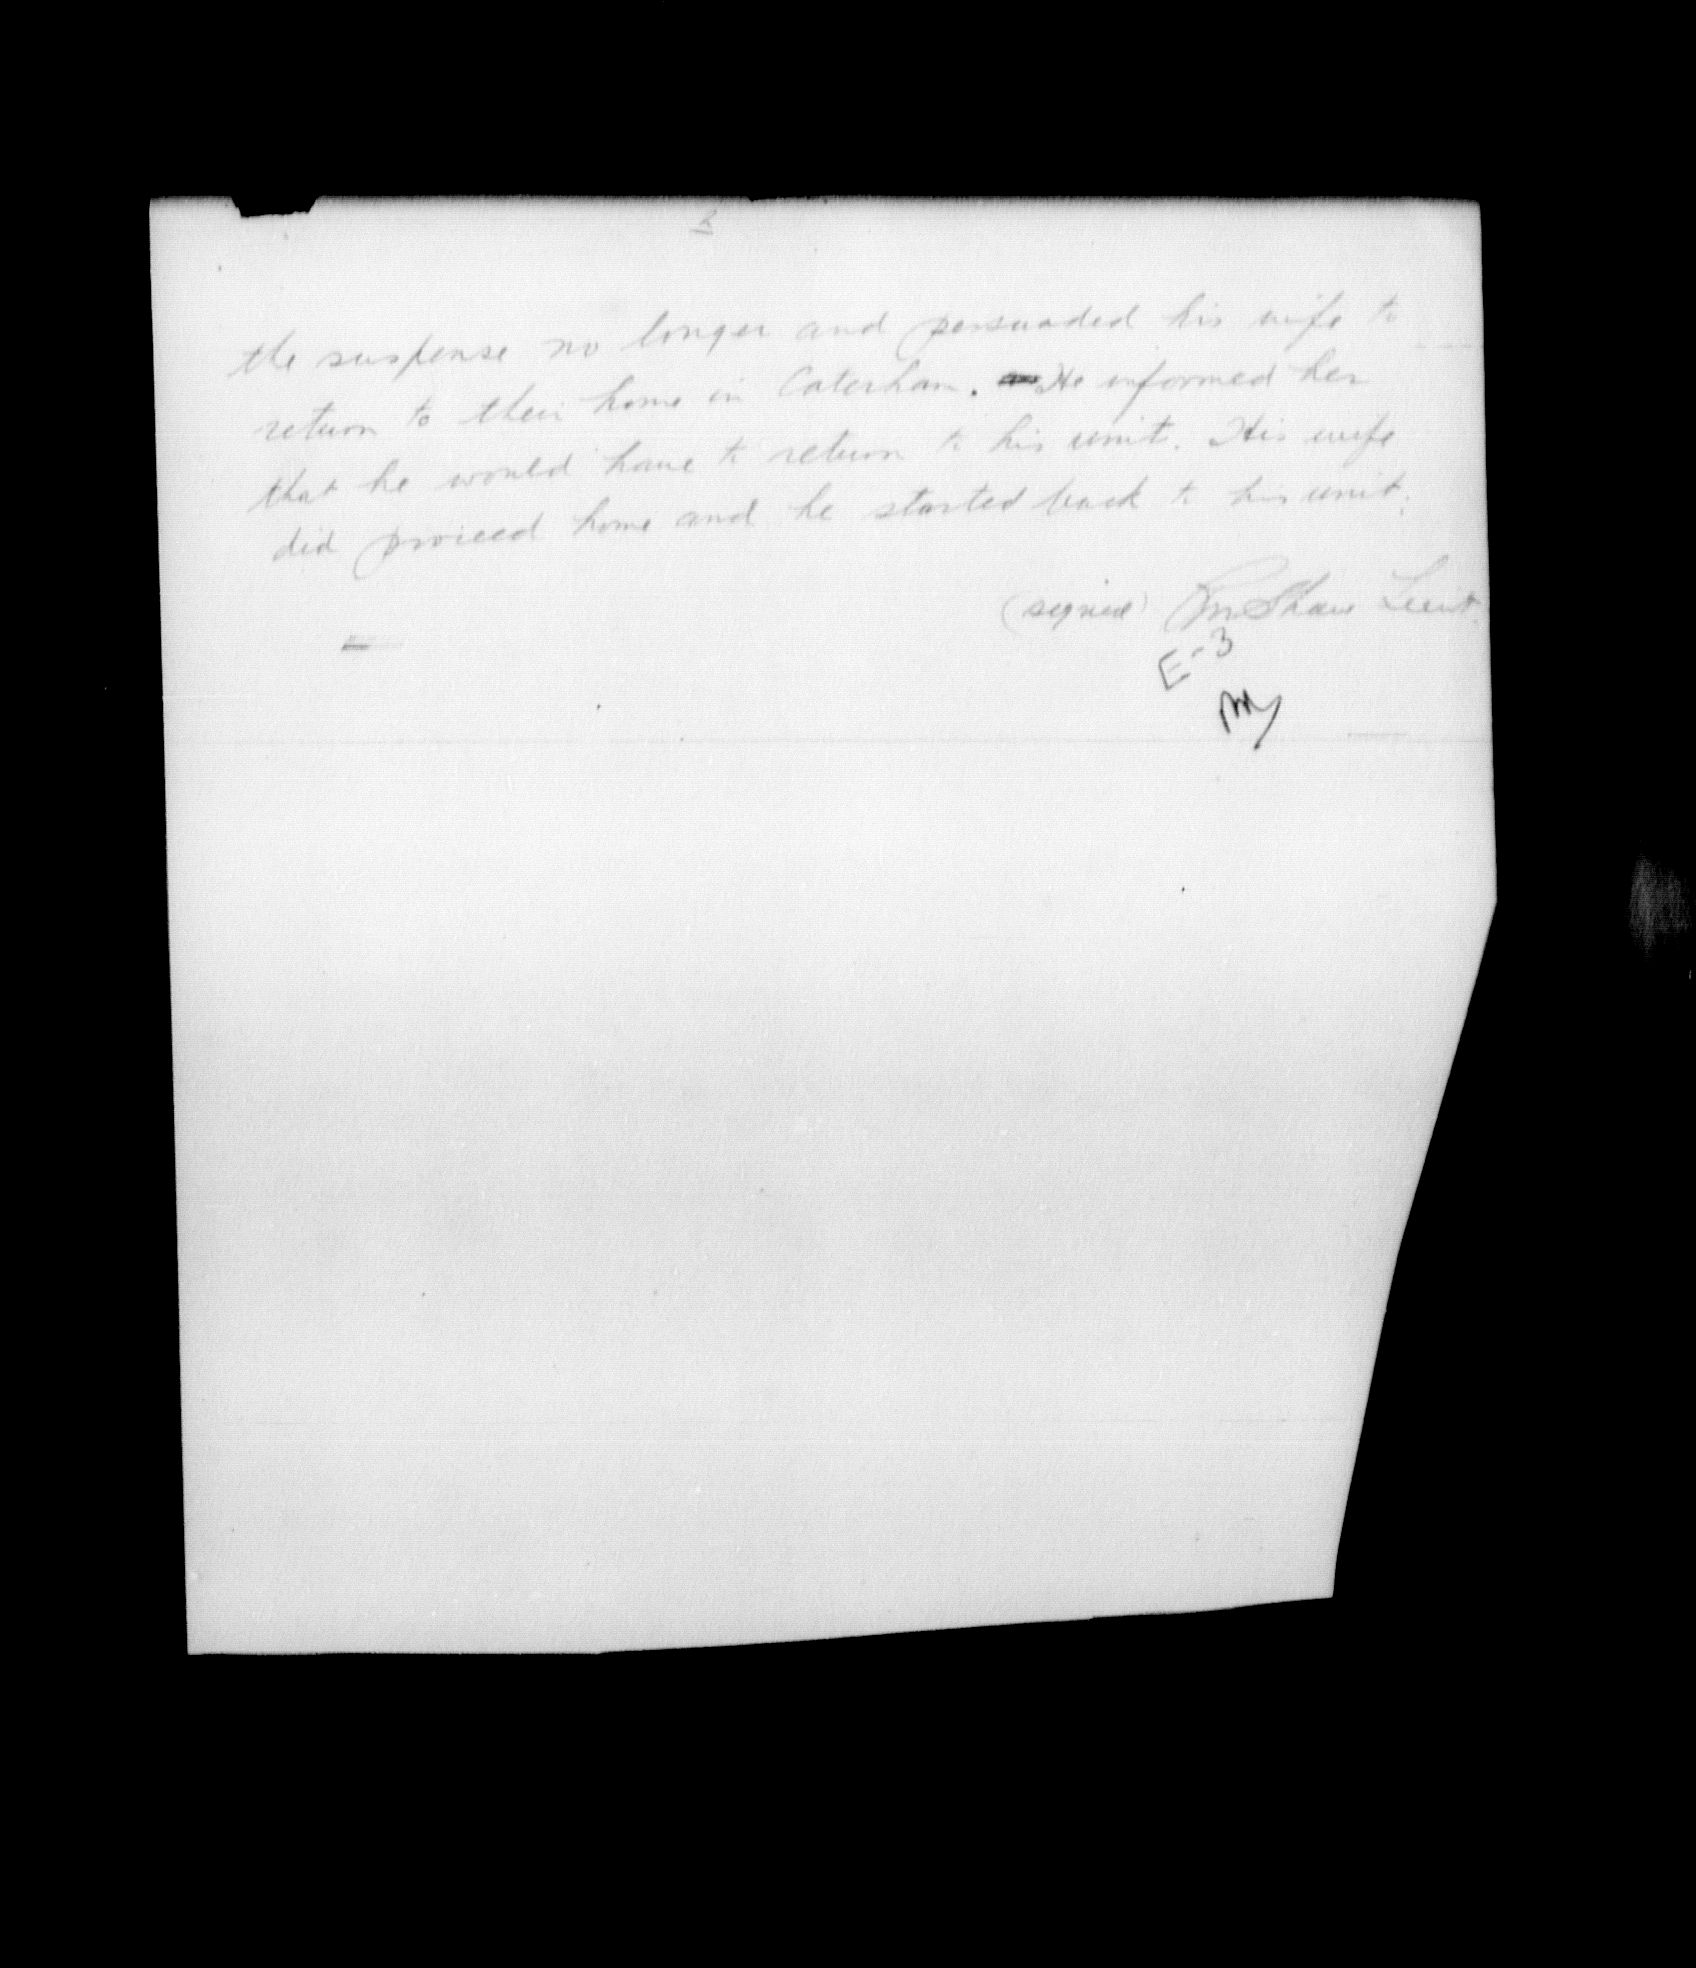 2
the suspense no longer and persuaded his wife to
return to their home in Caterham. He informed her
that he would have to return to his unit. His wife
did proceed home and he started back to his unit.
(signed) Shaw Lieut.
E-3